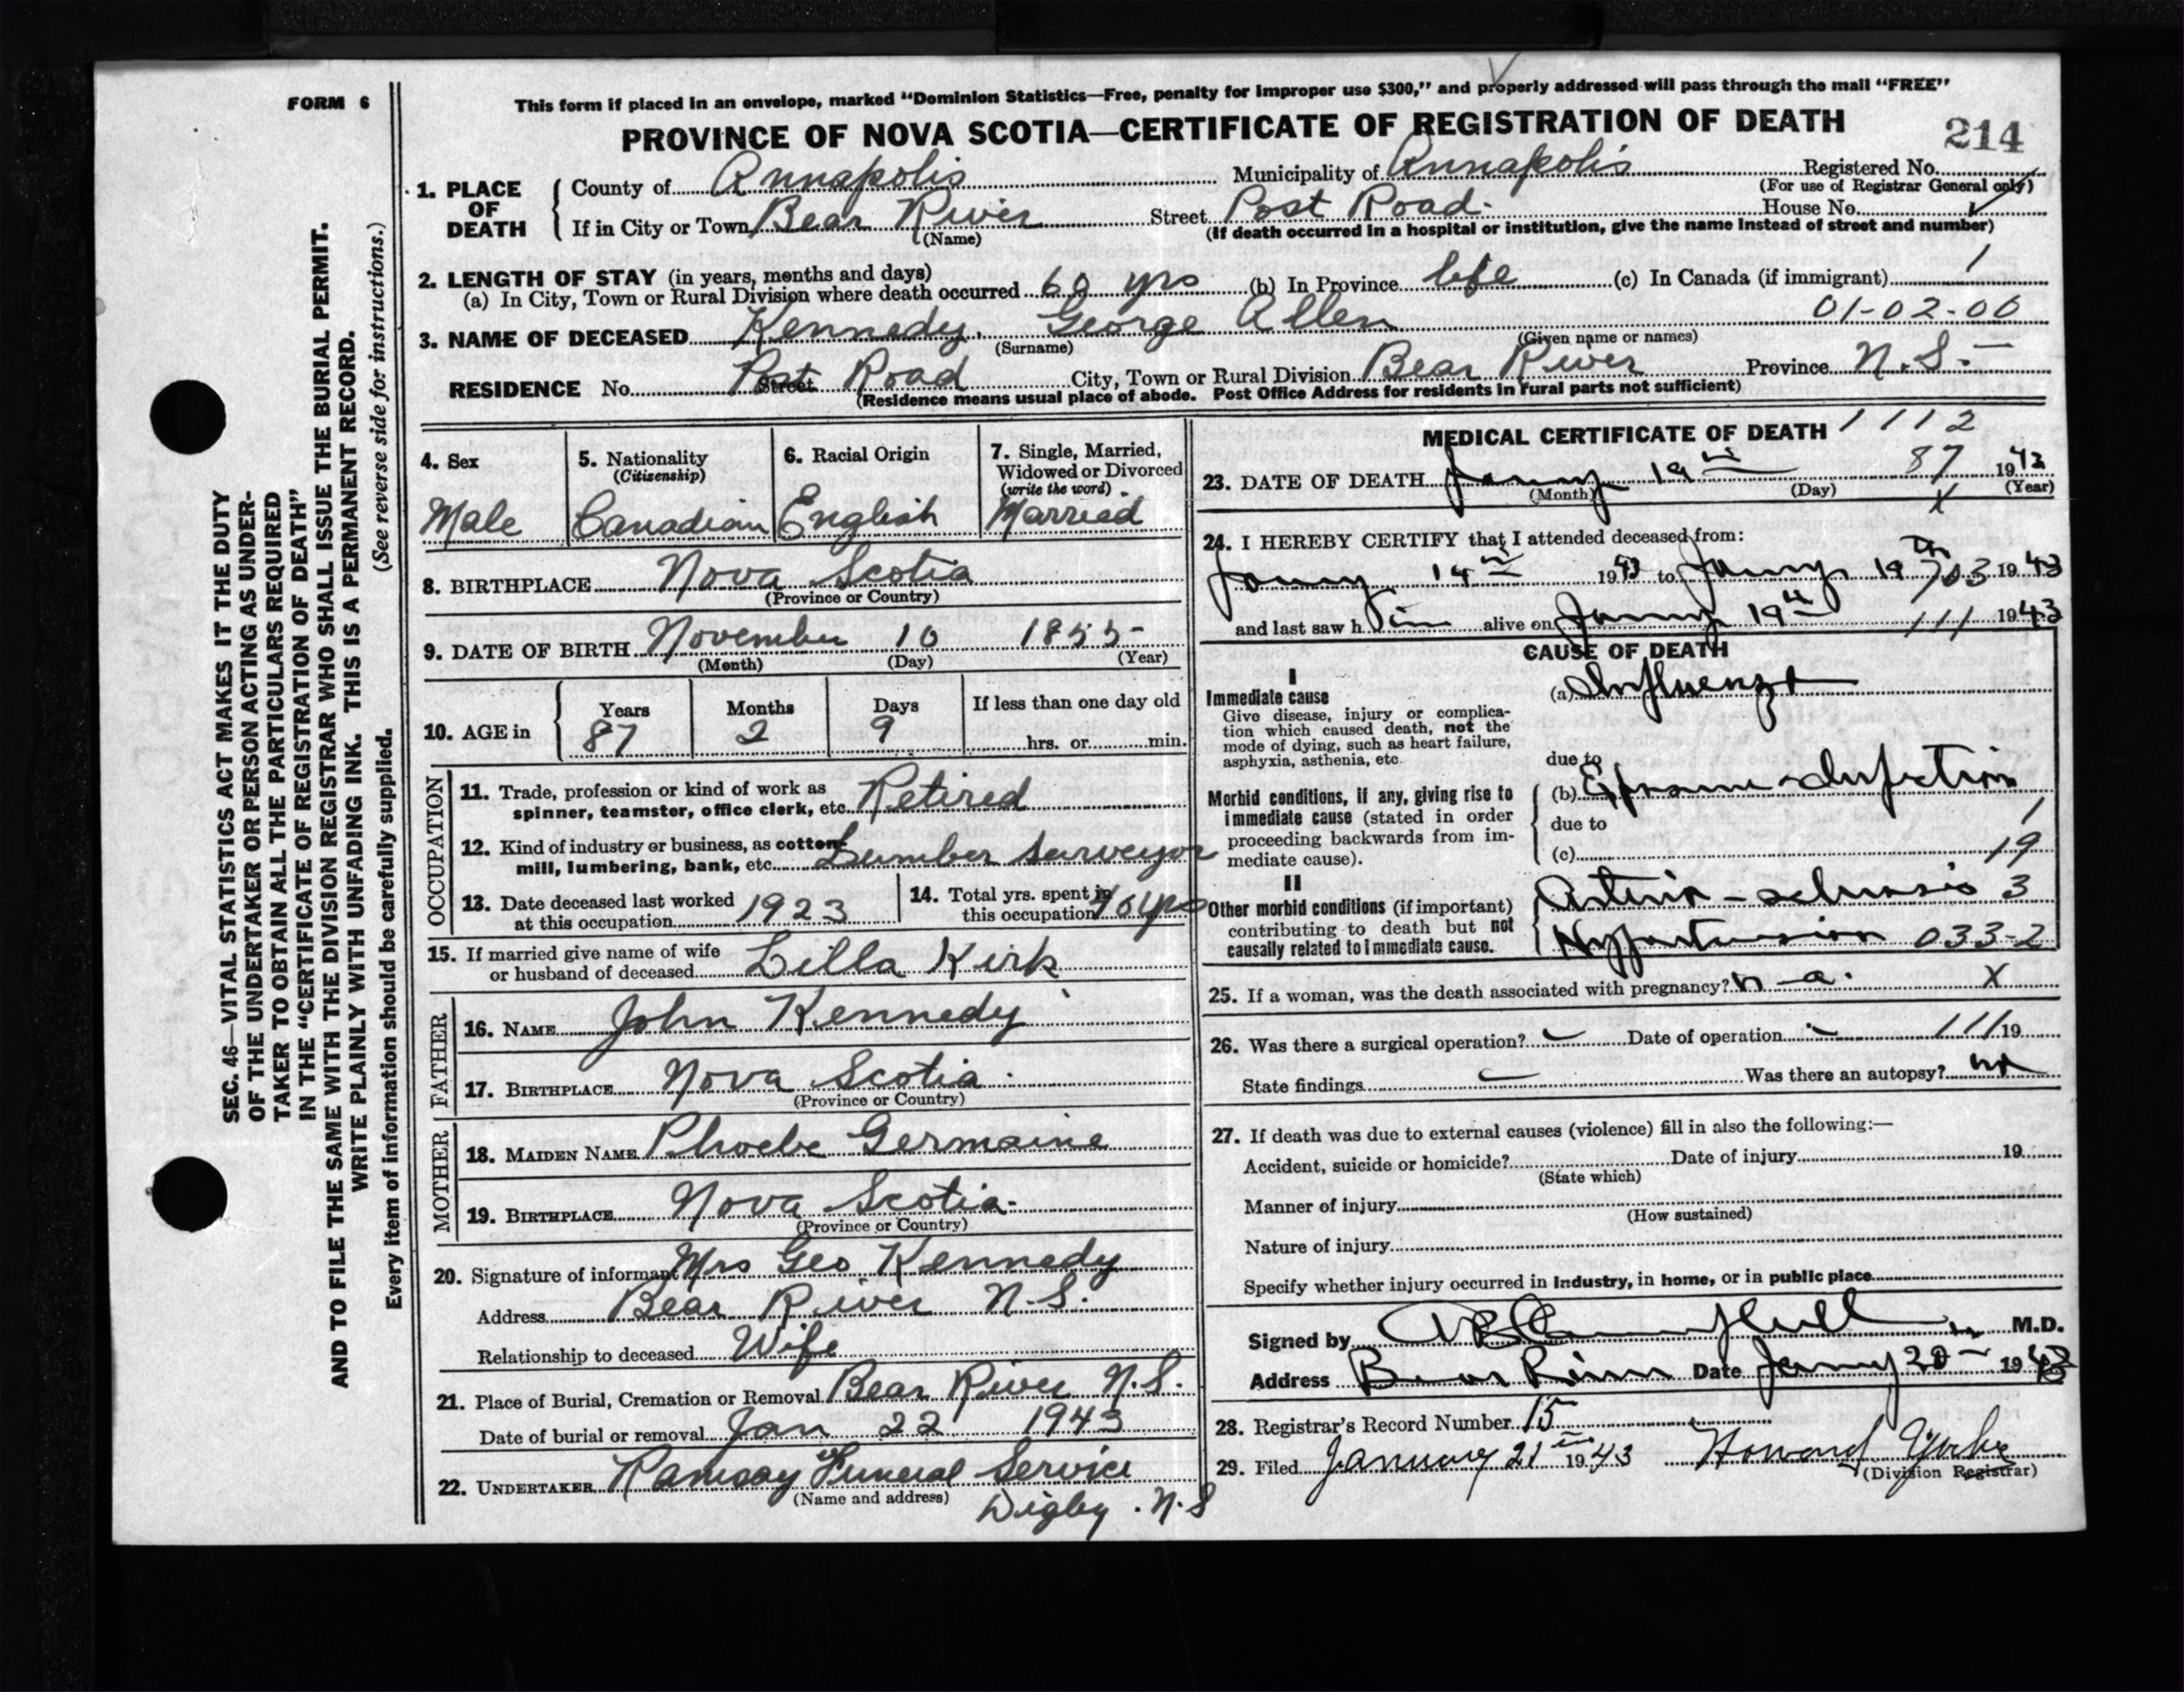 FORM 6
This form if placed in an envelope, marked "Dominion Statistics—Free, penalty for improper use $300," and properly addressed will pass through the mail "FREE"
PROVINCE OF NOVA SCOTIA—CERTIFICATE OF REGISTRATION OF DEATH
214
1. PLACE OF DEATH
County of Annapolis Municipality of Annapolis Registered No.
(For use of Registrar General only)
If in City or Town Bear River Street Post Road. House No.
(Name) (If death occurred in a hospital or institution, give the name instead of street and number)
2. LENGTH OF STAY (in years, months and days)
(a) In City, Town or Rural Division where death occurred 60 yrs (b) In Province life (c) In Canada (if immigrant)
01-02-00
3. NAME OF DECEASED Kennedy, George Allen
(Surname) (Given name or names)
RESIDENCE No. Street Post Road City, Town or Rural Division Bear River Province N.S.
(Residence means usual place of abode. Post Office Address for residents in rural parts not sufficient)
4. Sex Male
5. Nationality (Citizenship) Canadian
6. Racial Origin English
7. Single, Married, Widowed or Divorced (write the word) Married
8. BIRTHPLACE Nova Scotia
(Province or Country)
9. DATE OF BIRTH November 10 1855
(Month) (Day) (Year)
10. AGE in Years 87 Months 2 Days 9 If less than one day old
hrs. or min.
OCCUPATION
11. Trade, profession or kind of work as
spinner, teamster, office clerk, etc. Retired
12. Kind of industry or business, as cotton
mill, lumbering, bank, etc. Lumber Surveyor
13. Date deceased last worked
at this occupation 1923
14. Total yrs. spent in
this occupation 40 yrs
15. If married give name of wife
or husband of deceased Lilla Kirk
FATHER
16. NAME John Kennedy
17. BIRTHPLACE Nova Scotia
(Province or Country)
MOTHER
18. MAIDEN NAME Phoebe Germaine
19. BIRTHPLACE Nova Scotia
(Province or Country)
20. Signature of informant Mrs Geo Kennedy
Address Bear River N.S.
Relationship to deceased Wife
21. Place of Burial, Cremation or Removal Bear River N.S.
Date of burial or removal Jan 22 1943
22. UNDERTAKER Ramsay Funeral Service
(Name and address) Digby. N.S
MEDICAL CERTIFICATE OF DEATH 1112
23. DATE OF DEATH Janry 19th 87 1943
(Month) (Day) (Year)
X
24. I HEREBY CERTIFY that I attended deceased from:
Janry 14th 1943 to Janry 19th 703 1943
and last saw him alive on Janry 19th 111 1943
CAUSE OF DEATH
I
Immediate cause
Give disease, injury or complica-
tion which caused death, not the
mode of dying, such as heart failure,
asphyxia, asthenia, etc.
(a) Influenza
due to
Morbid conditions, if any, giving rise to
immediate cause (stated in order
proceeding backwards from im-
mediate cause).
(b) Infection
due to 1
(c) 19
II
Other morbid conditions (if important)
contributing to death but not
causally related to immediate cause.
Arterio-sclerosis 3
Hypertension 033-2
25. If a woman, was the death associated with pregnancy? n-a. X
26. Was there a surgical operation? – Date of operation – 111 19
State findings – Was there an autopsy? no
27. If death was due to external causes (violence) fill in also the following:—
Accident, suicide or homicide? Date of injury 19
(State which)
Manner of injury
(How sustained)
Nature of injury
Specify whether injury occurred in industry, in home, or in public place
Signed by M.D.
Address Bear River Date Janry 20 1943
28. Registrar's Record Number 15
29. Filed January 21 1943 Howard
(Division Registrar)
SEC. 46—VITAL STATISTICS ACT MAKES IT THE DUTY
OF THE UNDERTAKER OR PERSON ACTING AS UNDER-
TAKER TO OBTAIN ALL THE PARTICULARS REQUIRED
IN THE "CERTIFICATE OF REGISTRATION OF DEATH"
AND TO FILE THE SAME WITH THE DIVISION REGISTRAR WHO SHALL ISSUE THE BURIAL PERMIT.
WRITE PLAINLY WITH UNFADING INK. THIS IS A PERMANENT RECORD.
(See reverse side for instructions.)
Every item of information should be carefully supplied.